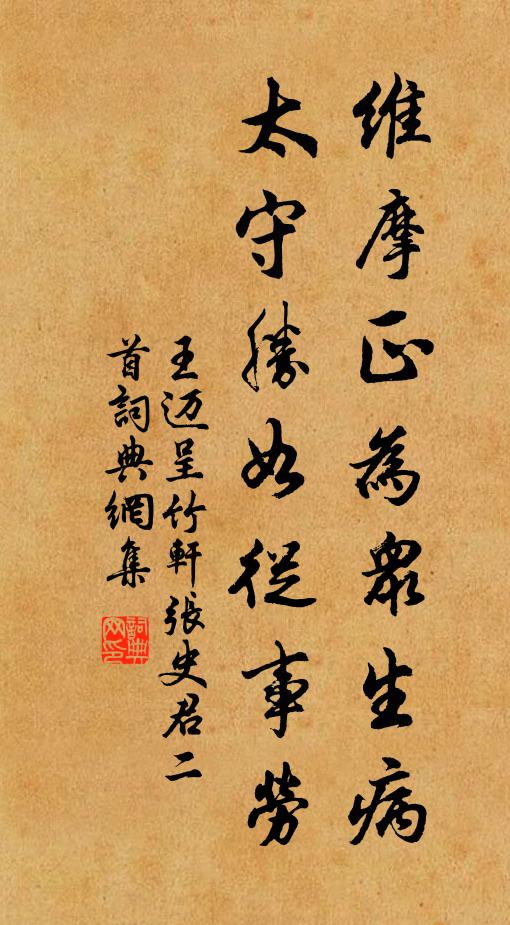 維摩正為眾生病
太守勝如從事勞
王迈呈竹軒張史君二
首詞典網集
詞典
网印